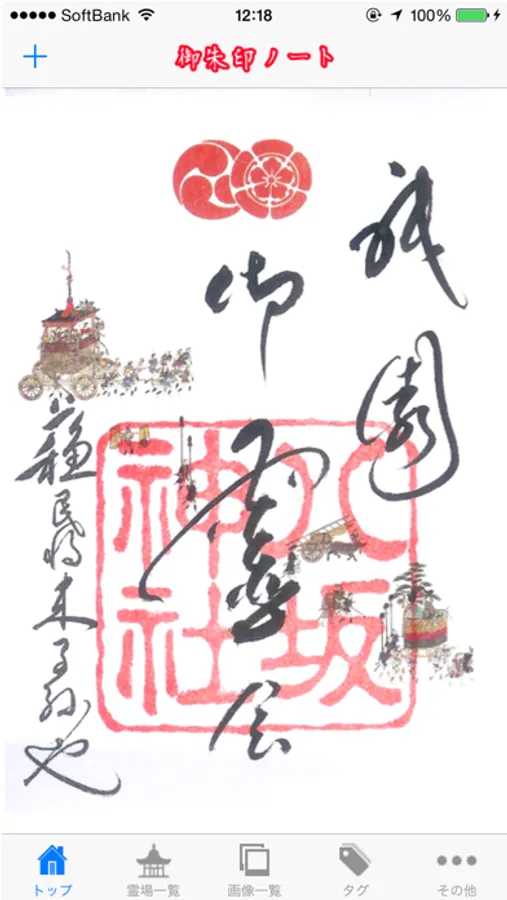 SoftBank 12:18 100%
御朱印ノート
祇園
御霊会
八坂
神社
蘇民将来子孫也
トップ
霊場一覧
画像一覧
タグ
その他